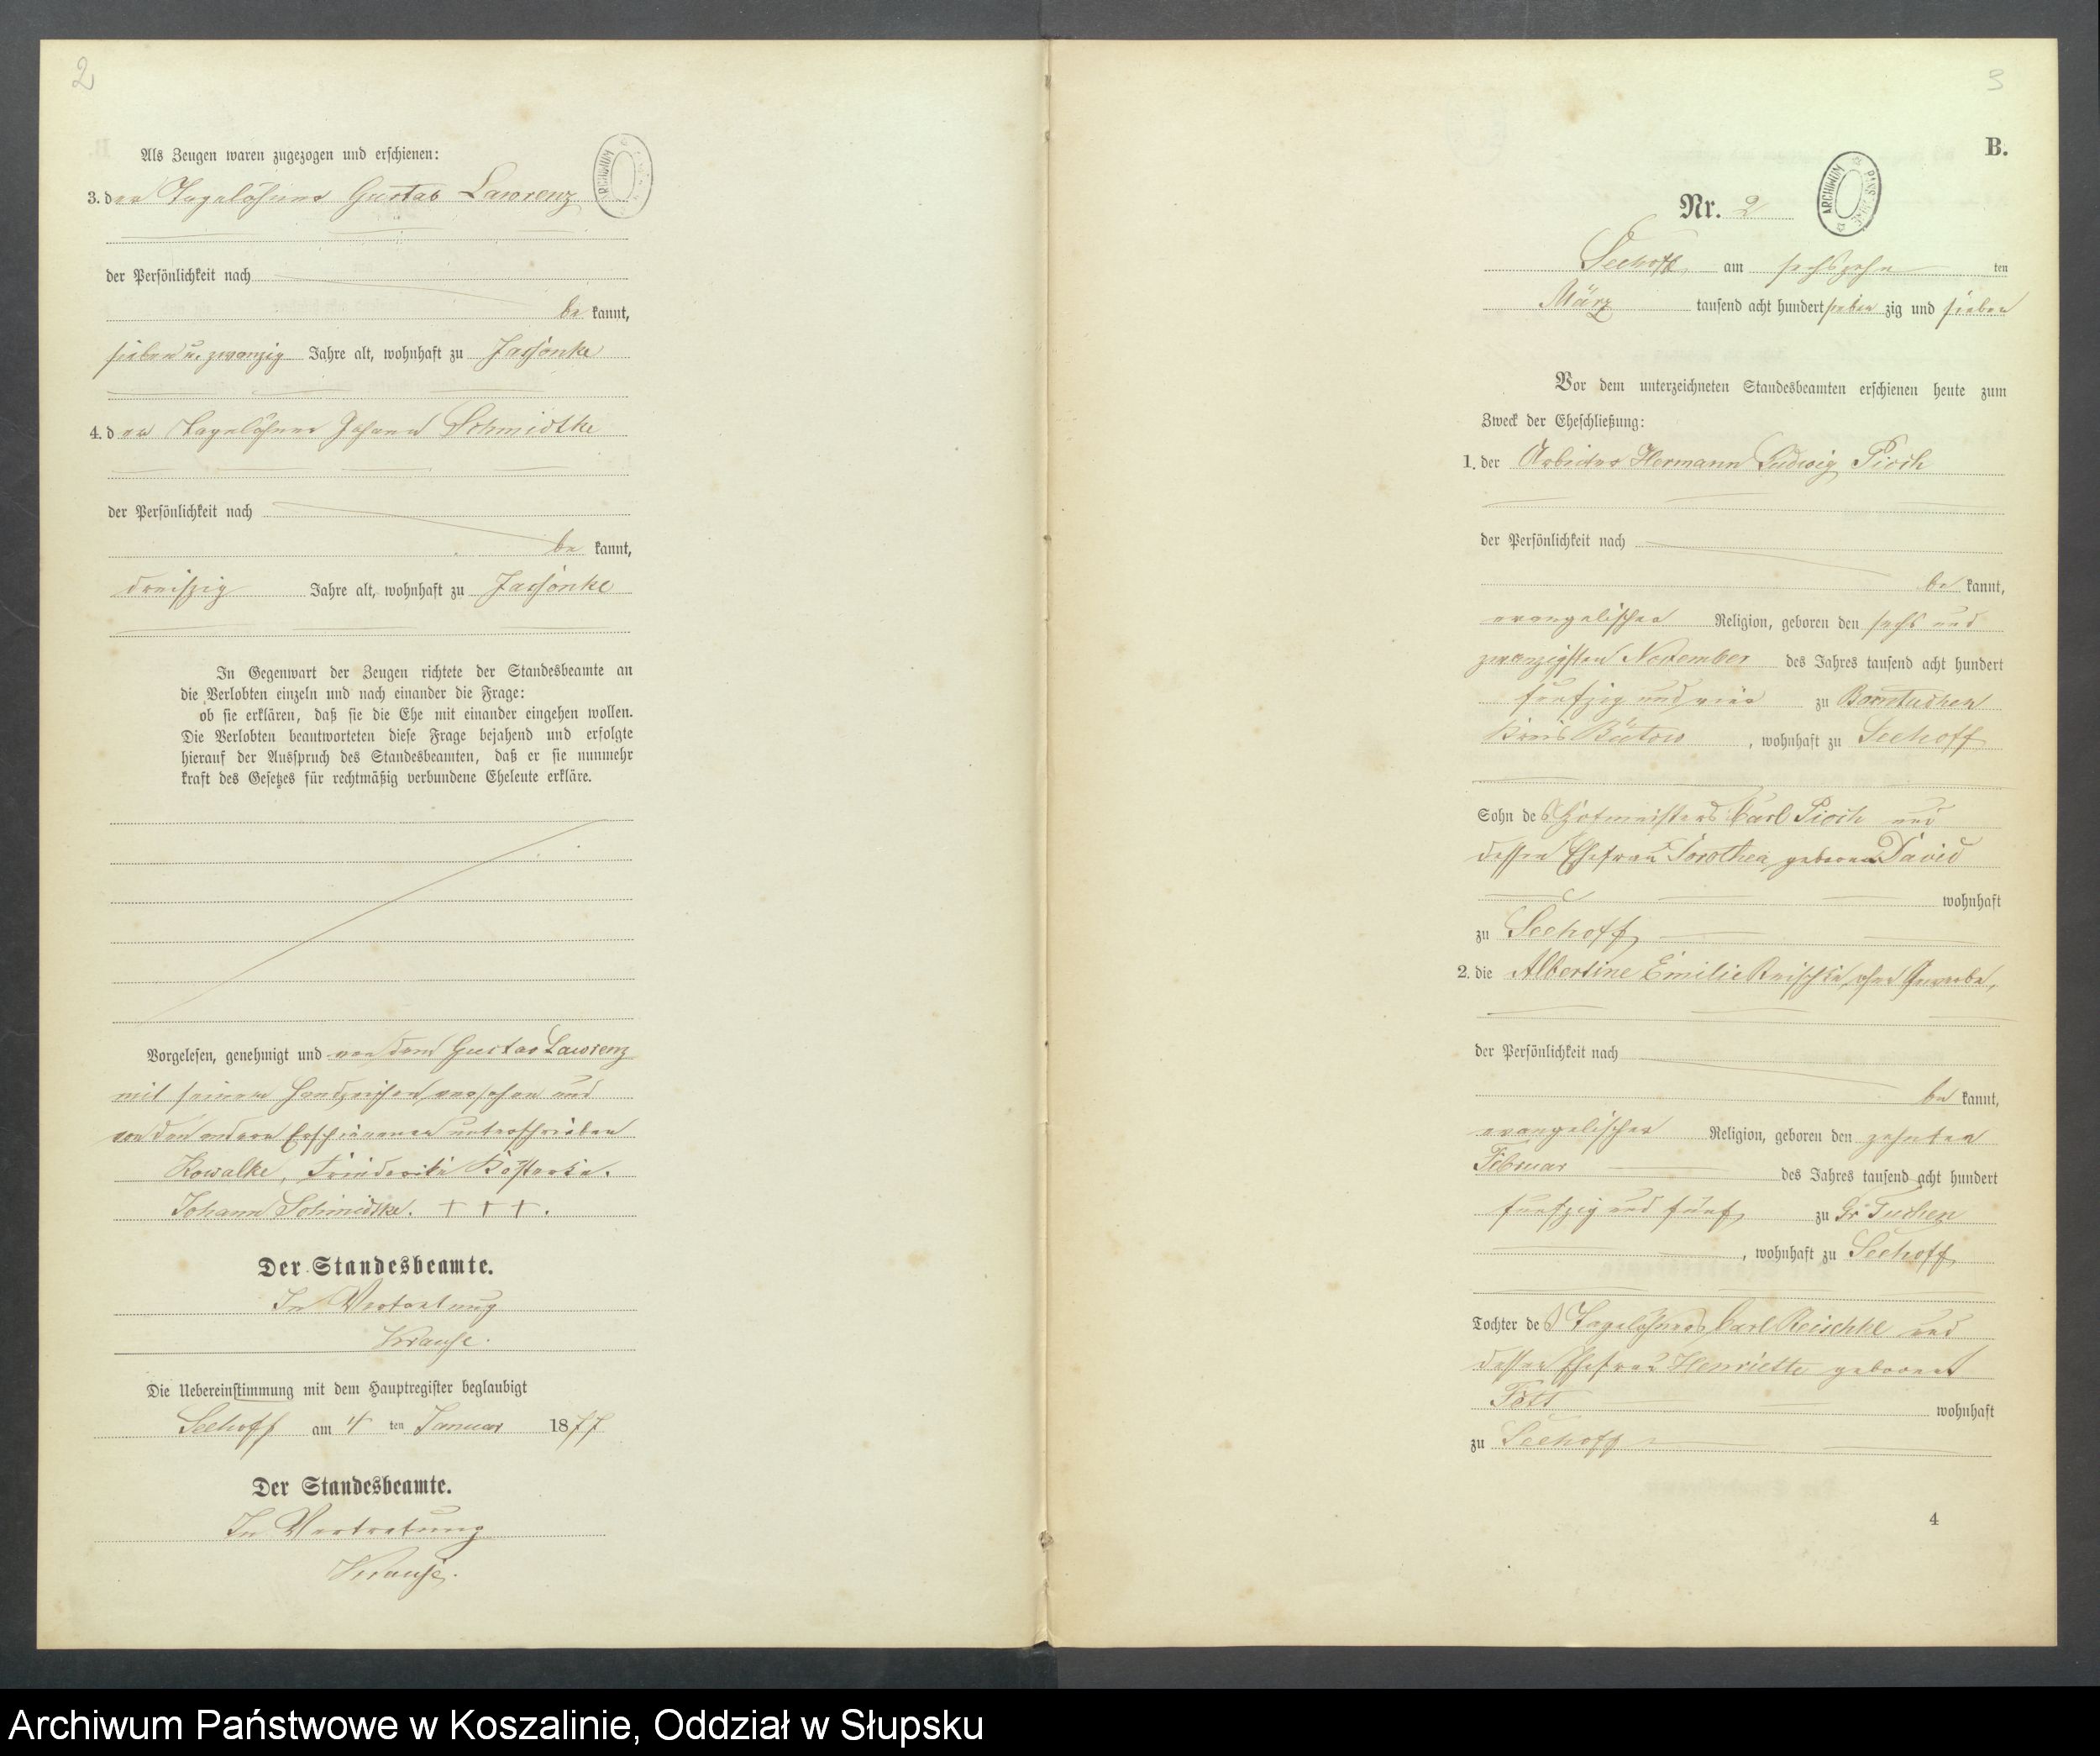 2
Als Zeugen waren zugezogen und erschienen:
3. der Tagelöhner Gustav Lawrenz
ARCHIWUM
der Persönlichkeit nach
be kannt,
sieben u. zwanzig Jahre alt, wohnhaft zu Jassonke
4. der Tagelöhner Johann Schmidtke
der Persönlichkeit nach
be kannt,
dreißig Jahre alt, wohnhaft zu Jassonke
In Gegenwart der Zeugen richtete der Standesbeamte an
die Verlobten einzeln und nach einander die Frage:
ob sie erklären, daß sie die Ehe mit einander eingehen wollen.
Die Verlobten beantworteten diese Frage bejahend und erfolgte
hierauf der Ausspruch des Standesbeamten, daß er sie nunmehr
kraft des Gesetzes für rechtmäßig verbundene Eheleute erkläre.
Vorgelesen, genehmigt und von dem Gustav Lawrenz
mit seinem Handzeichen versehen und
von den andern Erschienenen unterschrieben
Kowalke, Friederike
Johann Schmidtke. + + + .
Der Standesbeamte.
In Vertretung
Krause.
Die Uebereinstimmung mit dem Hauptregister beglaubigt
Seehoff am 4 ten Januar 1877
Der Standesbeamte.
In Vertretung
Krause.
3
B.
Nr. 2
ARCHIWUM
Seehoff, am sechszehn ten
März tausend acht hundert sieben zig und sieben
Vor dem unterzeichneten Standesbeamten erschienen heute zum
Zweck der Eheschließung:
1. der Arbeiter Hermann Ludwig Pioch
der Persönlichkeit nach
be kannt,
evangelischer Religion, geboren den sechs und
zwanzigsten November des Jahres tausend acht hundert
funfzig und vier zu Borntuchen
Kreis Bütow , wohnhaft zu Seehoff
Sohn des Hofmeisters Carl Pioch und
dessen Ehefrau Dorothea geborene David
wohnhaft
zu Seehoff
2. die Albertine Emilie Reischke, ohne Gewerbe,
der Persönlichkeit nach
be kannt,
evangelischer Religion, geboren den zehnten
Februar des Jahres tausend acht hundert
funfzig und fünf zu Gr Tuchen
, wohnhaft zu Seehoff
Tochter des Tagelöhners Carl Reischke und
dessen Ehefrau Henriette geborene
wohnhaft
zu Seehoff
4
Archiwum Państwowe w Koszalinie, Oddział w Słupsku